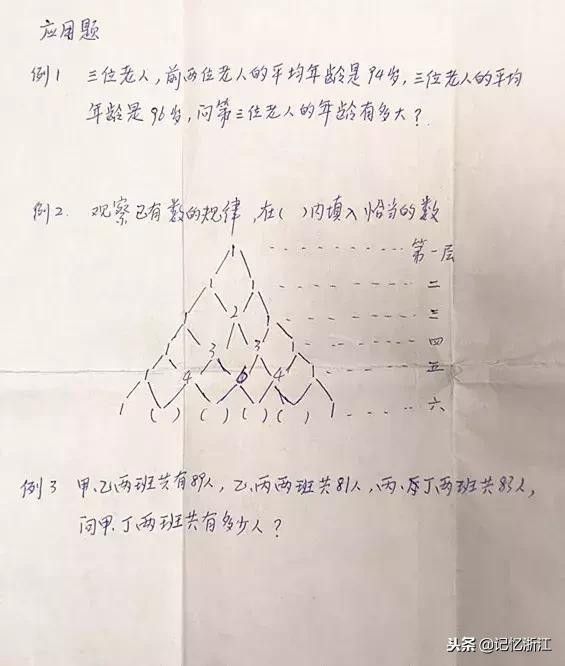 应用题
例1 三位老人,前两位老人的平均年龄是94岁,三位老人的平均
年龄是96岁,问第三位老人的年龄有多大?
例2. 观察已有数的规律,在( )内填入恰当的数
1 ---------- 第一层
1 1 -------- 二
1 2 1 ------ 三
1 3 3 1 ---- 四
1 4 6 4 1 --- 五
1 ( ) ( ) ( ) ( ) 1 ----- 六
例3 甲、乙两班共有89人,乙、丙两班共81人,丙、丁两班共83人,
问甲、丁两班共有多少人?
头条 @记忆浙江